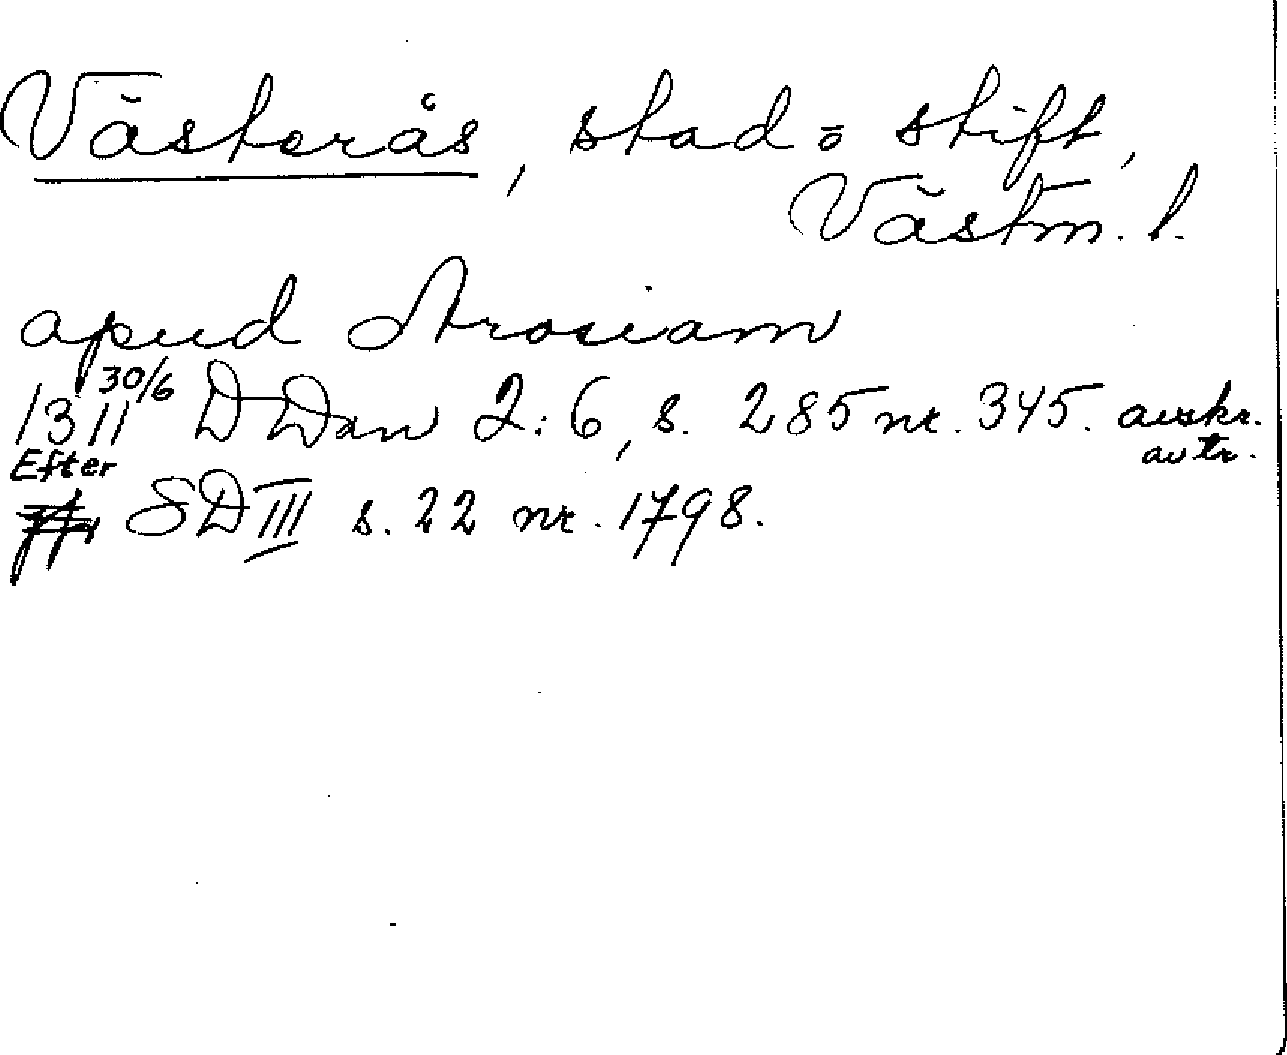 Västerås, stad o stift,
Västm. l.
apud Arosiam
1311 30/6 DDan 2:6, s. 285 nr. 345. avskr.
avtr.
Efter
SD III s. 22 nr. 1798.